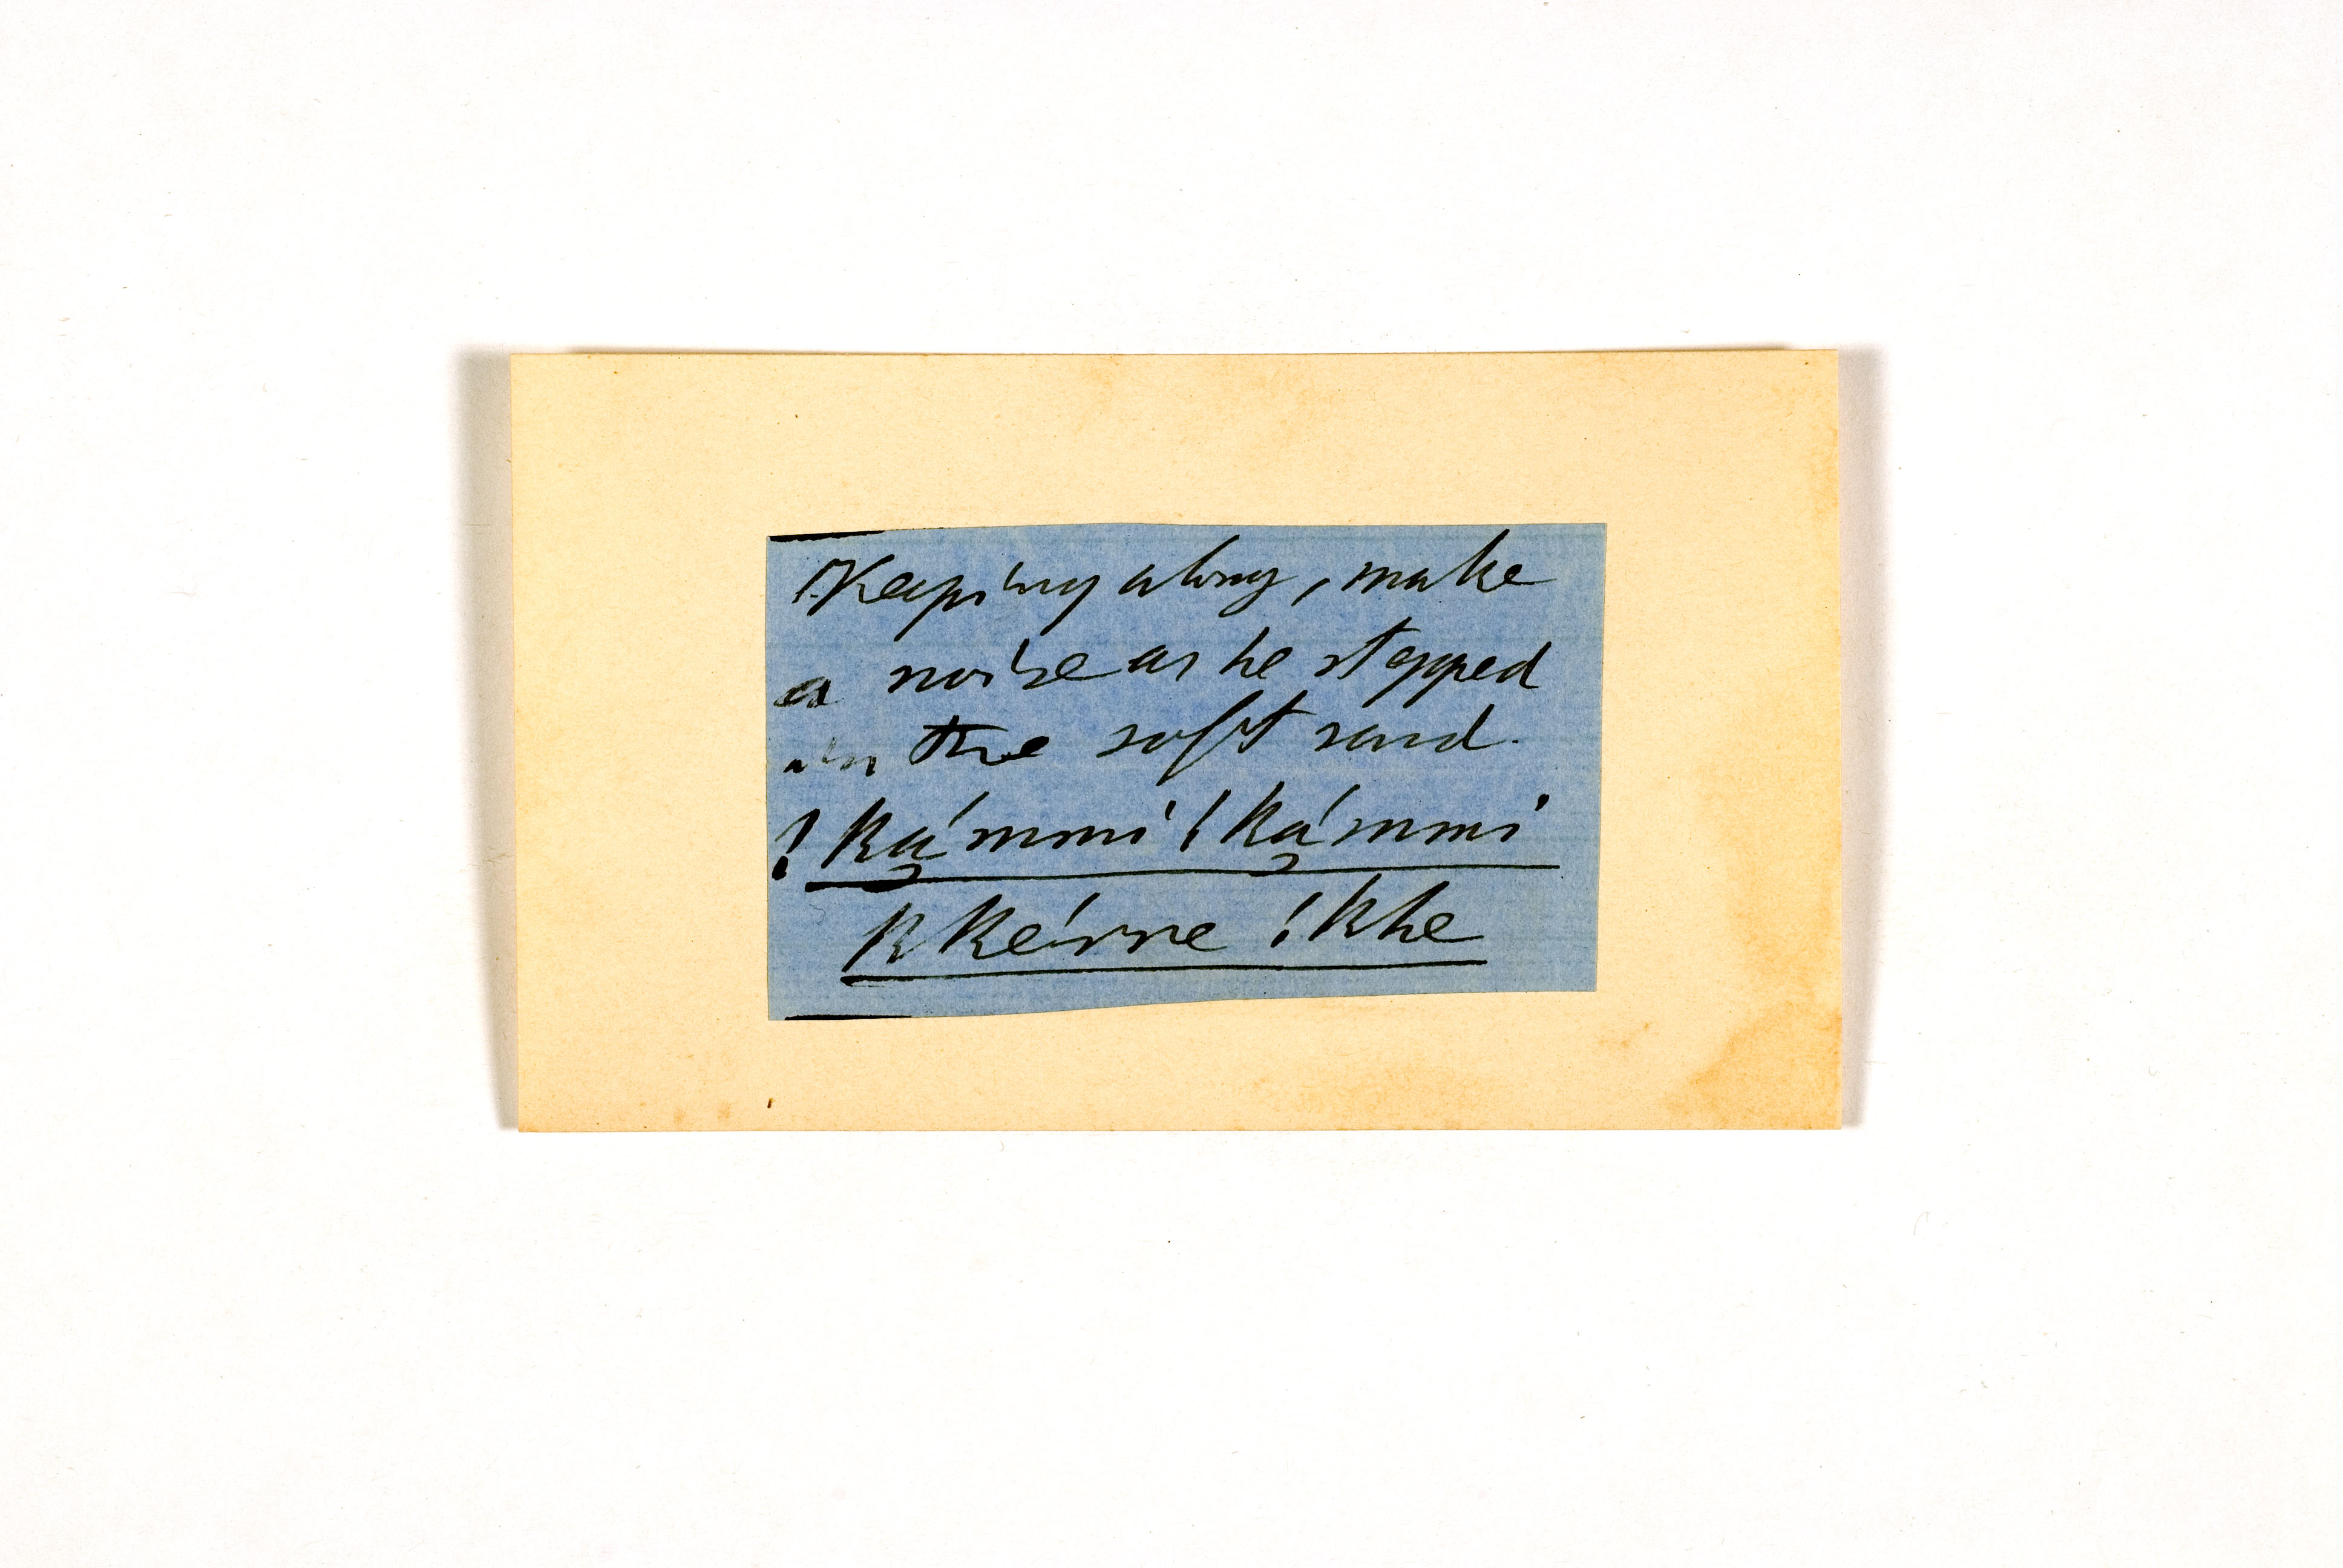 Keeping along, make
a noise as he stepped
in the soft sand.
!ká̱mmi !ká̱mmi
k ké̄rre !khe